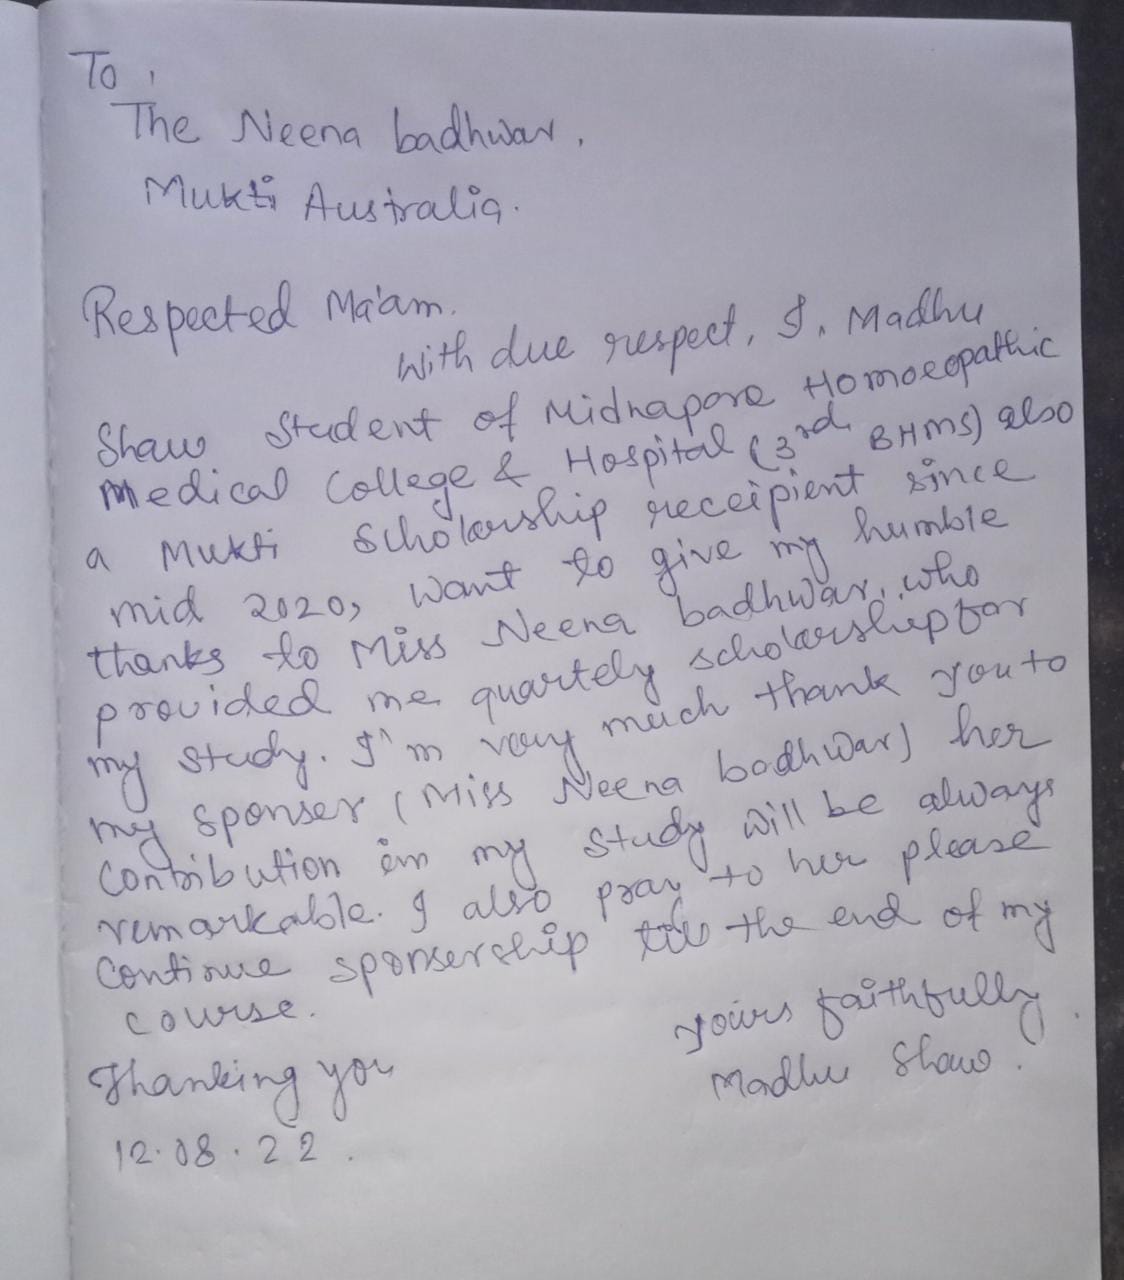 To,
The Neena badhwar,
Mukti Australia.
Respected Ma'am.
With due respect, I, Madhu
Shaw Student of Midnapore Homoeopathic
Medical College & Hospital (3rd BHMS) also
a Mukti Scholarship receipient since
mid 2020, want to give my humble
thanks to Miss Neena badhwar, who
provided me quartely scholarship for
my study. I'm very much thank you to
my sponser (Miss Neena badhwar) her
contribution in my study will be always
remarkable. I also pray to her please
continue sponsership till the end of my
course.
Thanking you
12.08.22.
yours faithfully
Madhu Shaw.